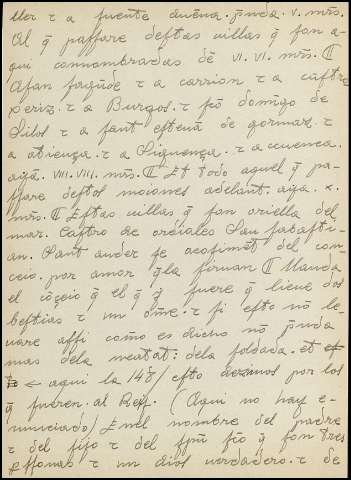 ller τ a fuente dueña. p̄nda. v. mr̄s.
Al q̄ paſſare deſtas uillas q̄ ſon a-
qui connombradas dē VI. VI. mr̄s. ₵
A ſan fagūde τ a carrion τ a caſtro
xeriz. τ a Burgos. τ ſc̄o domīgo de
Silos τ a ſant eſteuā de gormaz. τ
a atiença. τ a Siguença. τ a cuenca.
ayā. VIII. VIII. mr̄s. ₵ Et todo aquel q̄ pa-
ſſare deſtos moiones adelant. aya. x.
mr̄s. ₵ Eſtas uillas q̄ ſon oriella del
mar. Caſtro de ordiales San ſabaſti-
an. Sant ander ſe acoſimēt del con-
ceio. por amor q̄ la ſirman ₵ Manda
el cōçeio q̄ el q̄ q̄ fuere q̄ lieue dos
beſtias τ un om̄e. τ ſi eſto nō le-
uare aſſi como es dicho nō p̄nda
mas dela meatat: dela ſoldada. et
← aqui la 148/ eſto dezimos por los
q̄ fueren. al Rey. (Aqui no hay e-
nunciado) Enel nombre del padre
τ del fijo τ del ſp̄u ſc̄o q̄ ſon tres
p̄ſſonas τ un dios uerdadero. τ de